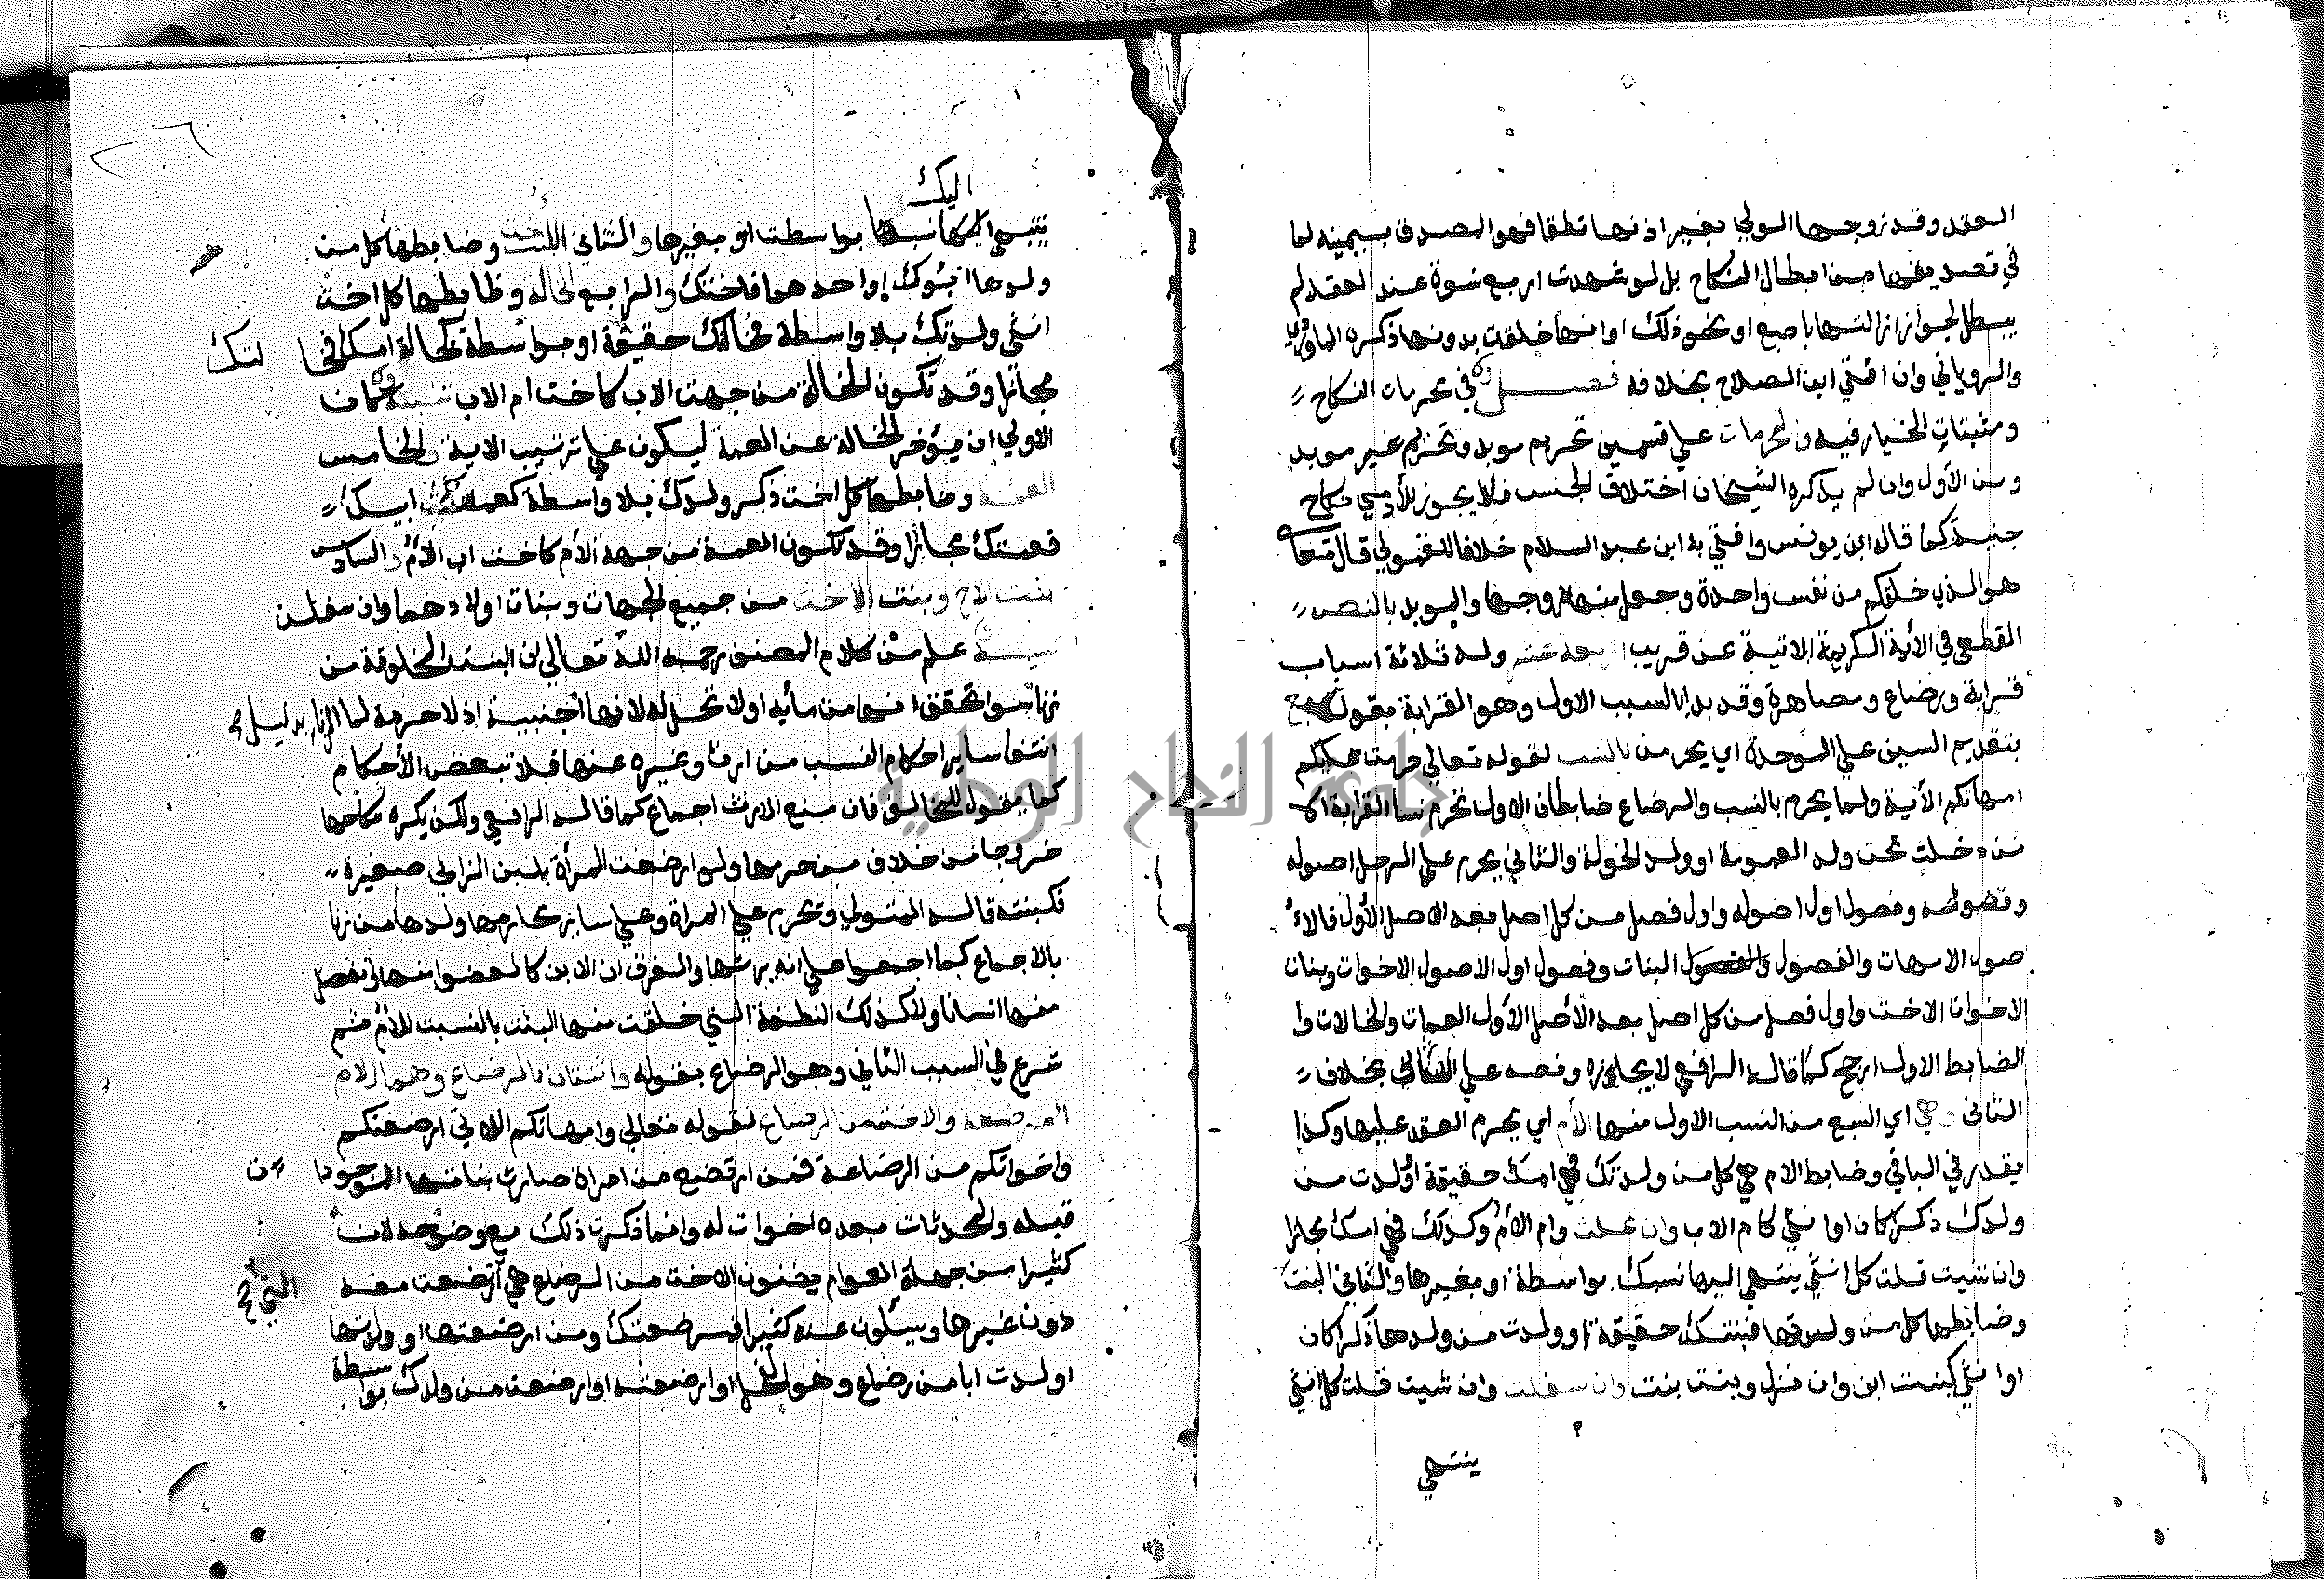 العقد وقد زوجها الولي بغير اذنها نطقا فهو المصدق بيمينه لما
في تصديقها من ابطال النكاح بل لو شهدت اربع نسوة عند العقد لم
يبطل لجواز ازالتها باصبع او نحو ذلك او انها خلقت بدونها ذكره الماوردي
والروياني وان افتي ابن الصلاح بخلافه فصل في محرمات النكاح
ومثبتات الخيار فيه والمحرمات علي قسمين تحريم موبد وتحريم غير موبد
ومن الأول وان لم يذكره الشيخان اختلاف الجنس فلا يجوز للآدمي نكاح
جنية كما قاله ابن يونس وافتي به ابن عبد السلام خلافا للقمولي قال تعالي
هو الذي خلقكم من نفس واحدة وجعل منها زوجها والموبد بالنص
القطعي في الأية الكريمة الاتية عن قريب اربعة عشر وله ثلاثة اسباب
قرابة ورضاع ومصاهرة وقد بدا بالسبب الاول وهو القرابة بقوله سبع
بتقديم السين علي الموحدة اي يحرمن بالنسب لقوله تعالي حرمت عليكم
امهاتكم الأية ولما يحرم بالنسب والرضاع ضابطان الاول تحرم نسا القرابة الا
من دخلت تحت ولد العمومة او ولد الخولة والثاني يحرم علي الرجل اصوله
وفصوله وفصول اول اصوله واول فصل من كل اصل بعد الاصل الأول فالا
صول الامهات والفصول البنات وفصول اول الأصول الاخوات وبنات
الاخوات الاخت واول فصل من كل اصل بعد الأصل الأول العمات والخالات وا
الضابط الاول ارجح كما قاله الرافعي لايجازه ونصه علي الاناث بخلاف
الثاني وهي اي السبع من النسب الاول منها الأم اي يحرم العقد عليها وكذا
يقدر في الباقي وضابط الام هي كل من ولدتك فهي امك حقيقة او ولدت من
ولدك ذكرا كان او انثي كام الاب وان علت وام الأم وكذلك فهي امك مجازا
وان شيت قلت كل انثي ينتهي اليها نسبك بواسطة او بغيرها والثاني البنت
وضابطها كل من ولدتها فبنتك حقيقة او ولدت من ولدها ذكرا كان
او انثي كبنت ابن وان نزل وبنت بنت وان سفلت وان شيت قلت كل انثي
ينتهي
اليك
ينتهي نسبها بواسطت او بغيرها والثاني الاخت وضابطها كل من
ولدها ابوك او احدهما فاختك والرابع الخالة وضابطها كل اخت
انثي ولدتك بلا واسطة فخالتك حقيقة او بواسطة كخالة امك فخا لتك
مجازا وقد تكون الخالة من جهت الاب كاخت ام الاب تنبيه كان
الاولي ان يؤخر الخالة عن العمة ليكون علي ترتيب الاية والخامس
العمة وضابطها كل اخت ذكر ولدك بلا واسطة كعمة ابيك
فعمتك مجازا وقد تكون العمة من جهة الأم كاخت اب الأم والسادس
بنت الاخ وبنت الاخت من جميع الجهات وبنات اولادهما وان سفلن
تنبيه علم من كلام المصنف رحمه الله تعالي ان البنت المخلوقة من
زنا سوا تحقق انها من مائه اولا تحل له لانها أجنبية اذ لا حرمة لما الزنا بدليل
انتفا ساير احكام النسب من ارث وغيره عنها فلا تبعض الأحكام
كما يقول المخالف فان منع الارث اجماع كما قاله الرافعي ولكن يكره نكاحها
خروجا من خلاف من حرمها ولو ارضعت المرأة بلبن الزاني صغيرة
فكبنته قاله المتولي وتحرم علي المراة وعلي ساير محارمها ولدها من زنا
بالاجماع كما اجمعوا علي انه يرثها والفرق ان الابن كالعضو منها وانفصل
منها انسانا ولا كذلك النطفة التي خلقت منها البنت بالنسبت للأم ثم
شرع في السبب الثاني وهو الرضاع بقوله واثنتان بالرضاع وهما الام
المرضعة والاخت من الرضاع لقوله تعالي وامهاتكم اللاتي ارضعنكم
واخواتكم من الرضاعة فمن ارتضع من امراة صارت بناتها الموجودا ت
قبله والمحدثات بعده اخوات له وانما ذكرت ذلك مع وضوحه لان
كثيرا من جهلة العوام يظنون الاخت من الرضاع هي التي ارتضعت معه
دون غيرها ويسئلون عنه كثيرا فمرضعتك ومن ارضعتها او ولدتها
او لدت ابا من رضاع وهو الفحل او ارضعته او ارضعت من ولدك بواسطة